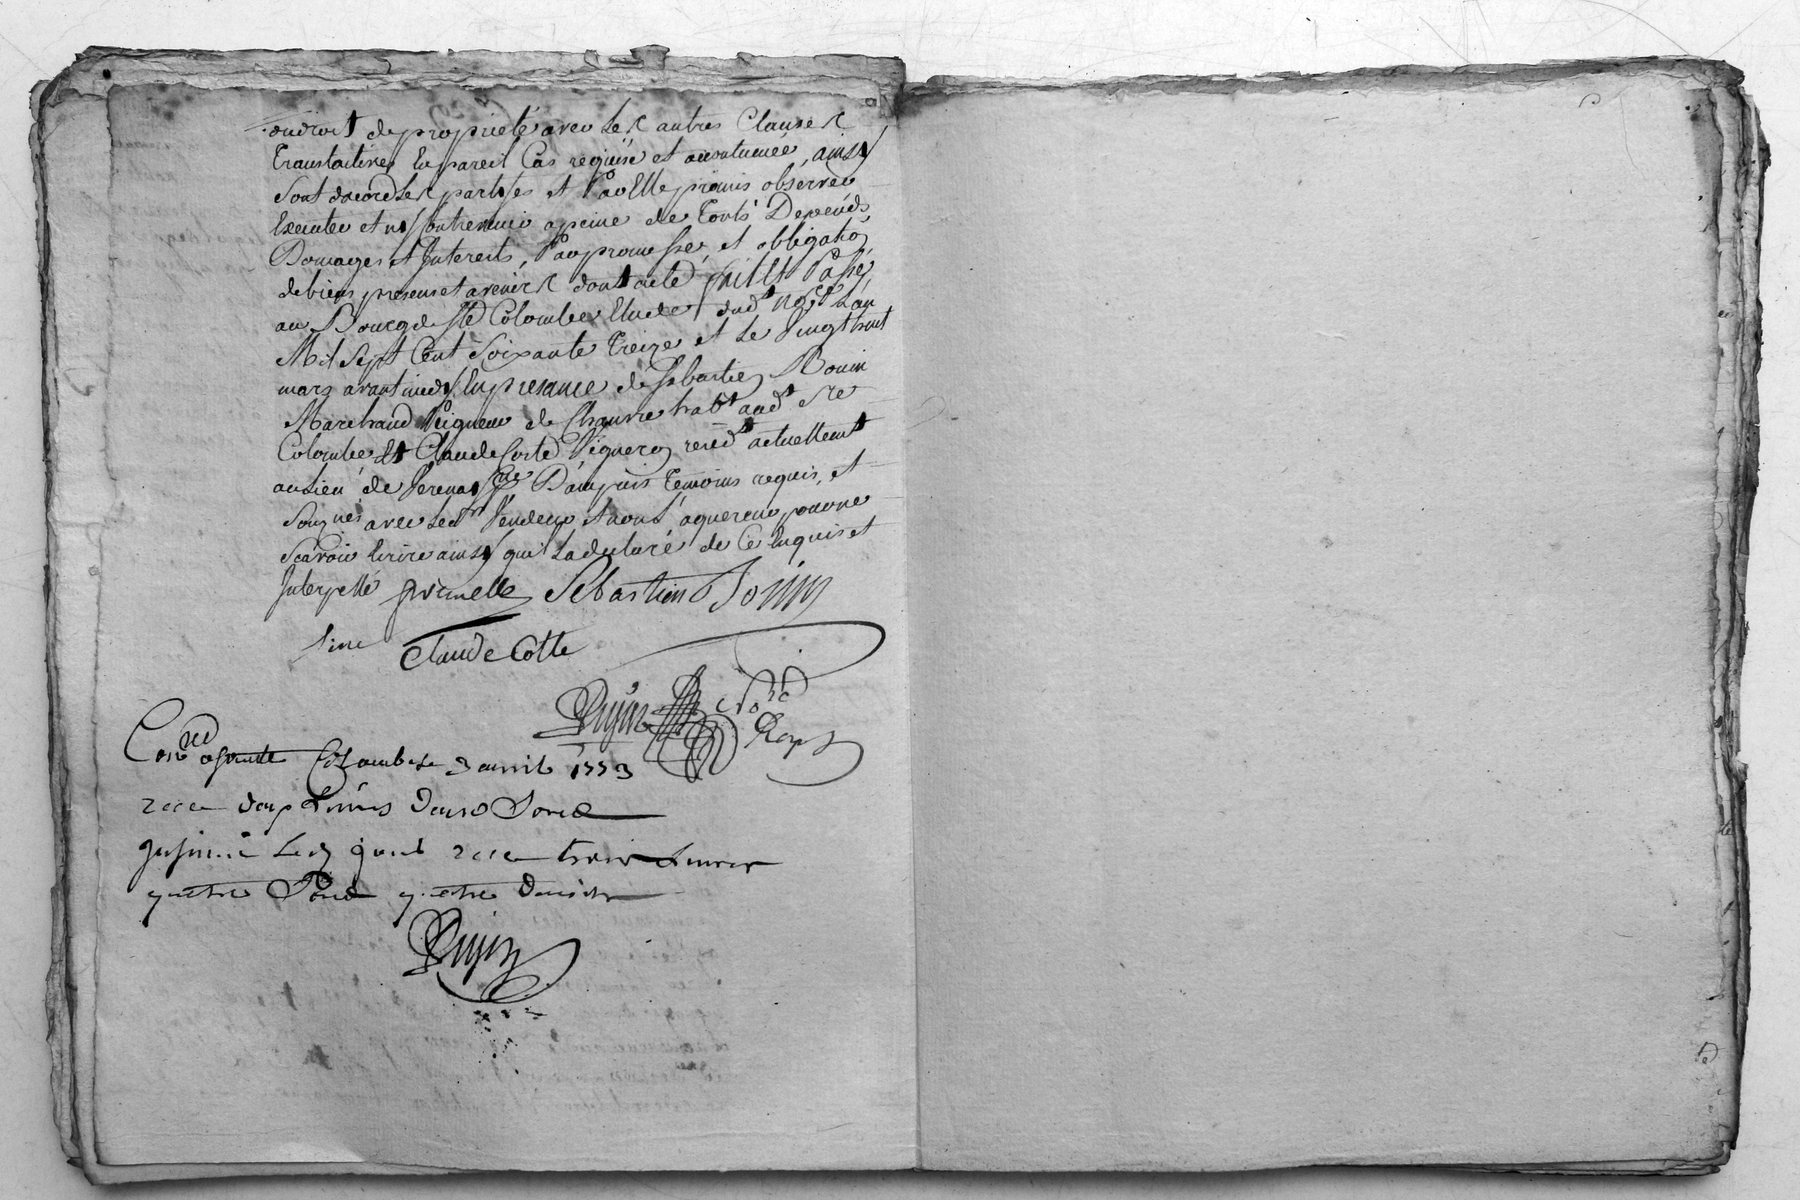 ou droit de propriété avec les autres Clauses
translatives En pareil Cas requise et acoutumée, ainsy
Sont daccord les parties et l'ont Elle promis observer
Executer et ny Contrevenir apeine de touts Depends
Domages et Interests, Par promesse, et obligatiō
de biens presens et avenirs dont acte fait Et Passé
au Bourg de Ste Colombe Etude dud.t no.re L'an
Mil Sept Cent Soixante Treize et Le Vingt huit
mars avant midy En presance de Sebastien Bonin
Marchand Peigneur de Chanvre hab.t aud.t Ste
Colombe Et Claude Cotte Vigneron resid.t actuellem.t
au Lieu de Verenay P.sse D'ampuis temoins requis, et
Soignés avec Led.t Vendeur et non L'aquereur pour ne
Scavoir Ecrire ainsy qu'il La declaré de Ce Enquis et
Interpellé Sebastien Bonin
Claude Cotte
No.re Roy.l
Con.lé a Sainte Colombe Le 3 avril 1773
recu deux Livres douze Sols
Insinué Led. jour recu trois Livres
quatre Sols quatre deniers